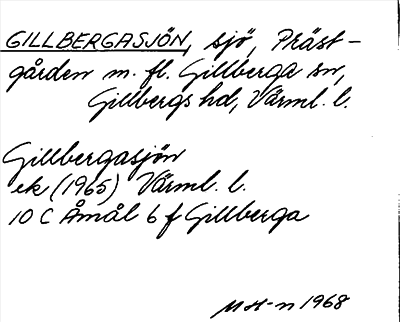 GILLBERGASJÖN, sjö, Präst-
gården m. fl. Gillberga sn,
Gillbergs hd, Värml. l.
Gillbergasjön
ek (1965) Värml. l.
10 C Åmål 6 f Gillberga
MH-n 1968